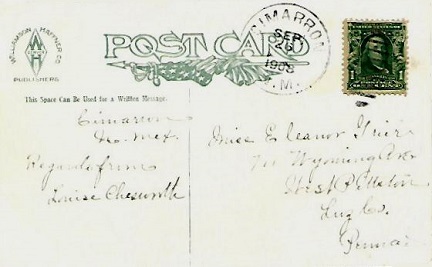 WILLIAMSON HAFFNER CO
PUBLISHERS
POST CARD
CIMARRON
SEP
26
1908
N.M.
1
1
This Space Can Be Used for a Written Message.
Cimarron
N. Mex.
Regards from
Louise Chesworth
Miss Eleanor
711 Wyoming Ave
West Pittston
Luz Co.
Penna.